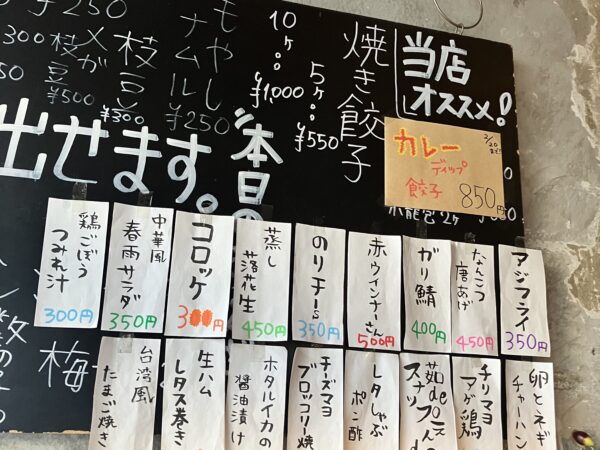 当店
オススメ!
焼き餃子
5ヶ…¥550
10ヶ…¥1000
もやし
ナムル
¥250
枝豆
¥300
枝豆
¥500
¥250
300
出せます。
本日の
カレー
ディップ
餃子
850円
2/20まで!!
小籠包2ヶ
アジフライ
350円
なんこつ
唐あげ
450円
ガリ鯖
400円
赤ウインナーさん
500円
のりチーs
350円
蒸し
落花生
450円
コロッケ
300円
中華風
春雨サラダ
350円
鶏ごぼう
つみれ汁
300円
卵とネギ
チャーハン
チリマヨ
アゲ鶏
茹de
スナッ
レタしゃぶ
ポン酢
チーズマヨ
ブロッコリー焼
ホタルイカの
醤油漬け
生ハム
レタス巻き
台湾風
たまご焼き
梅